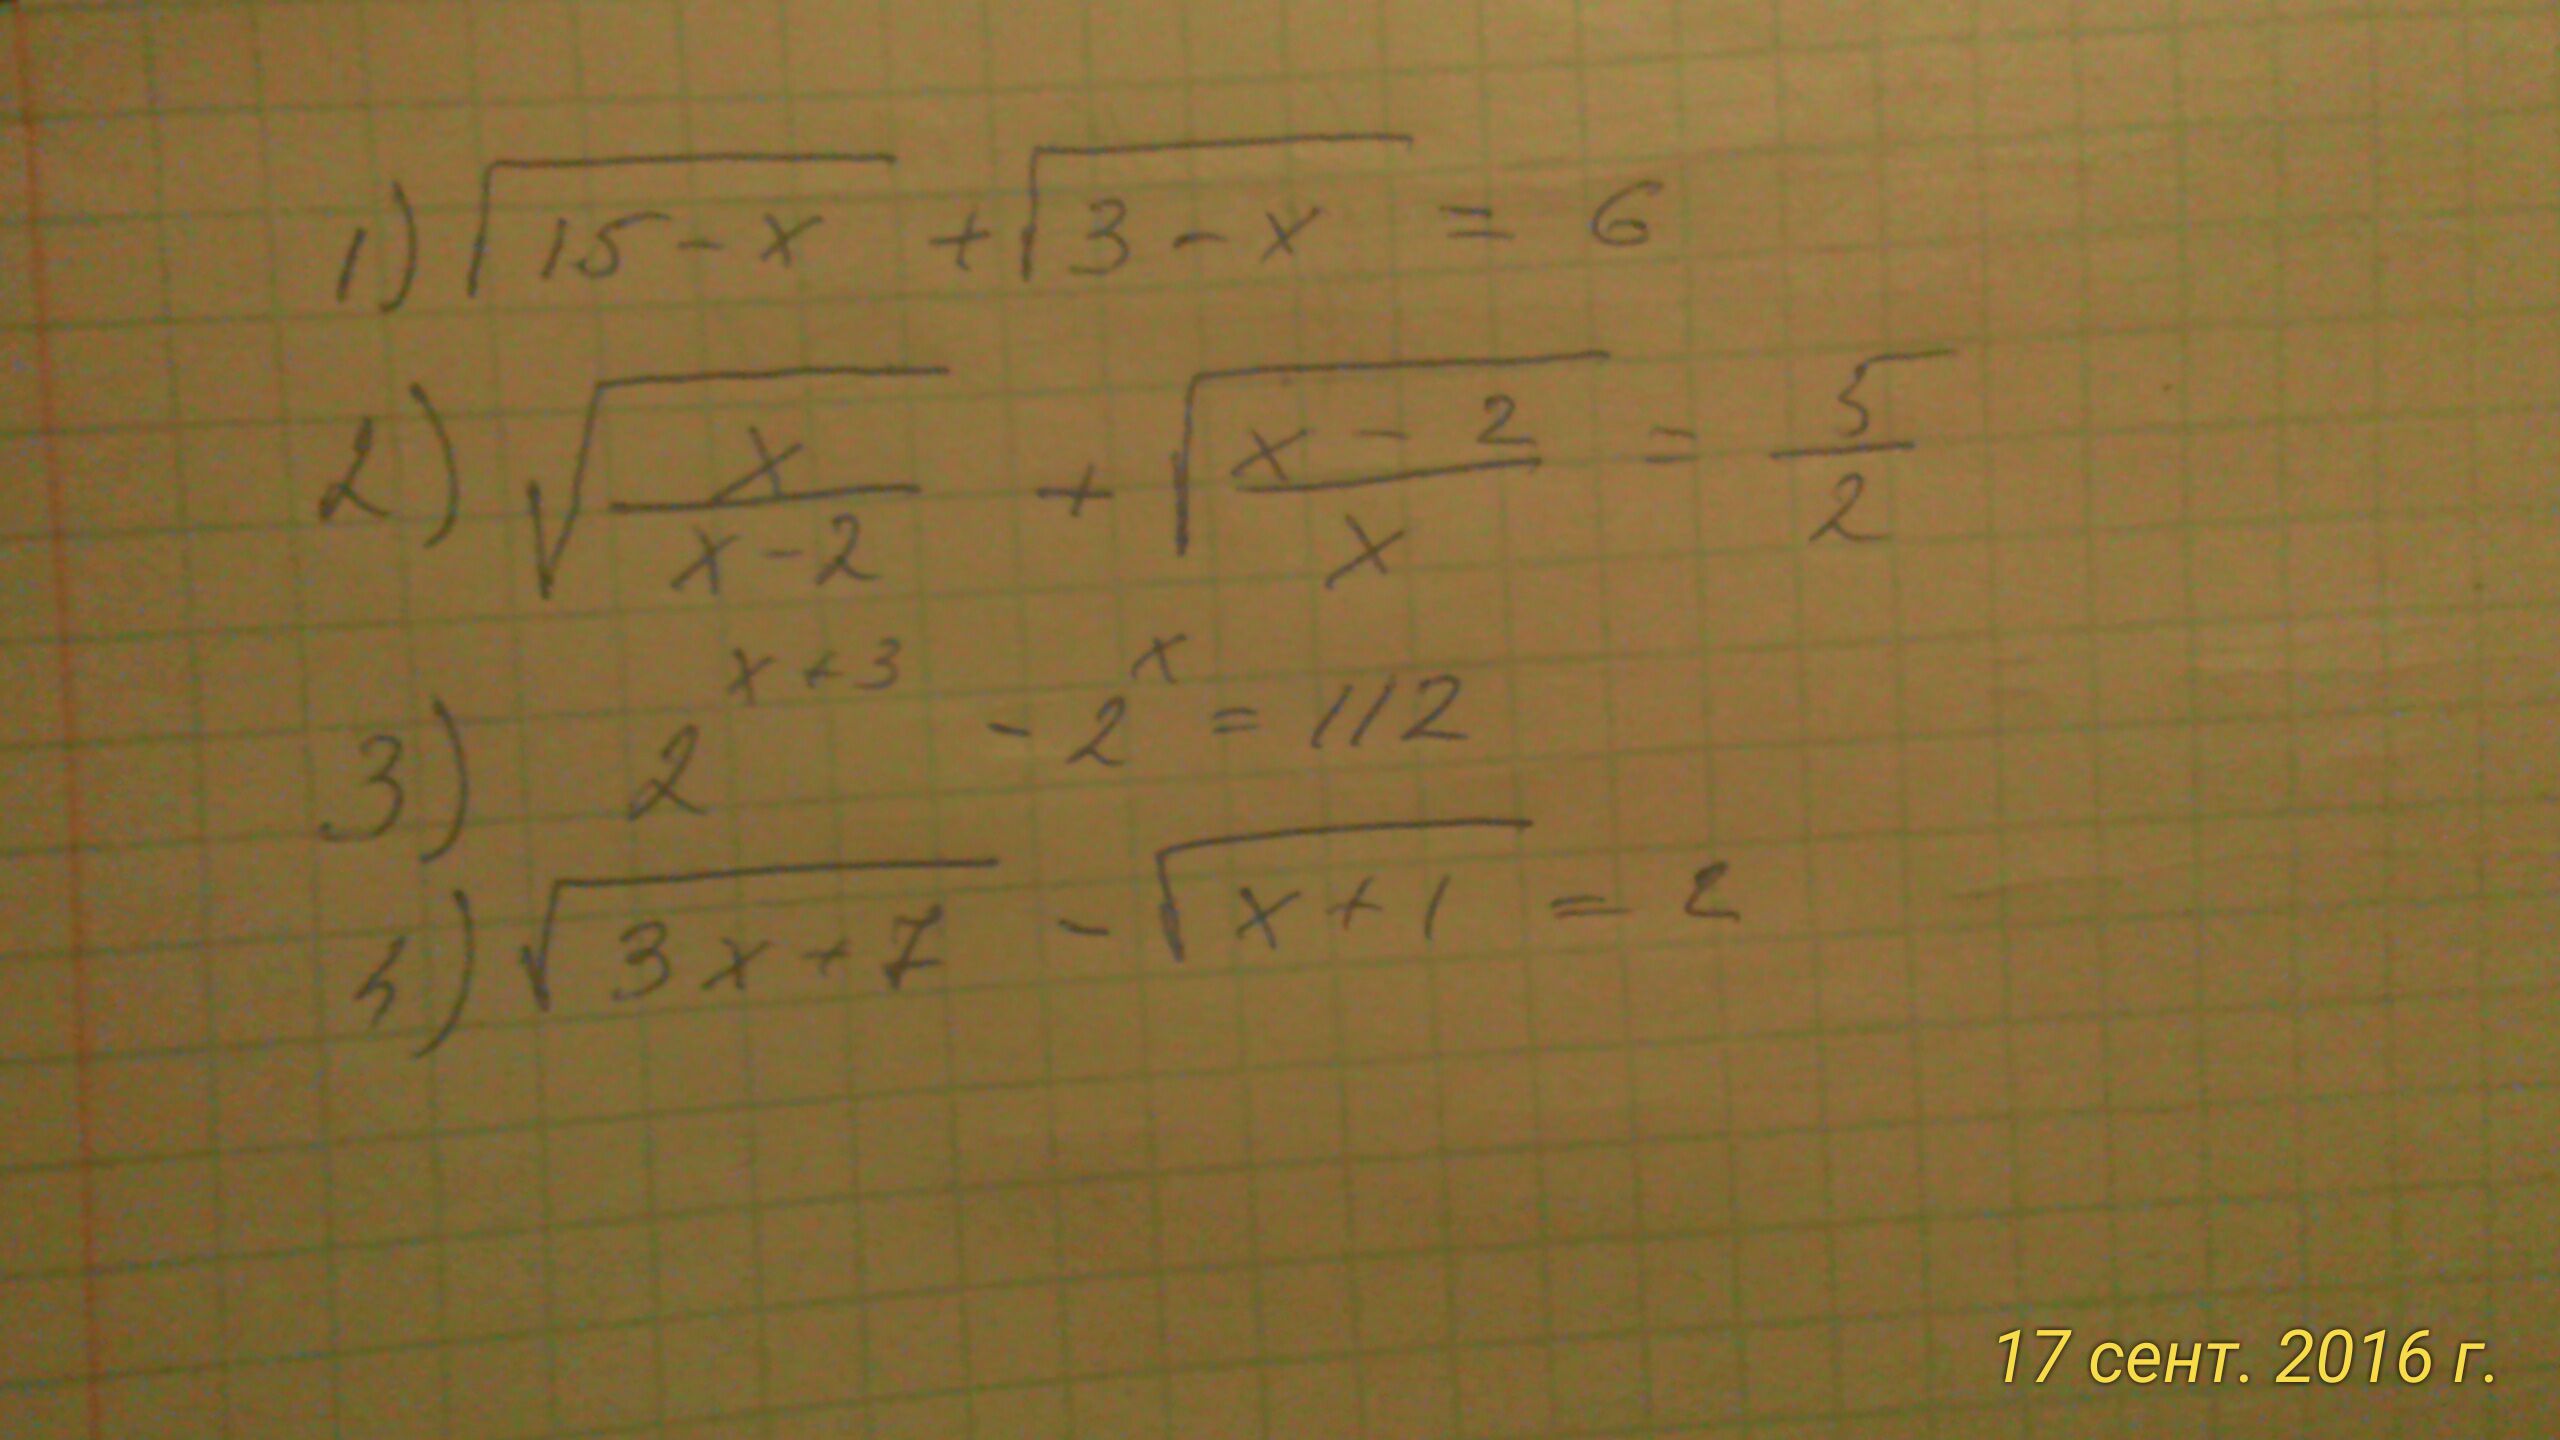 1) √(15-x) + √(3-x) = 6
2) √(x/(x-2)) + √((x-2)/x) = 5/2
3) 2^(x+3) - 2^x = 112
4) √(3x+7) - √(x+1) = 2
17 сент. 2016 г.